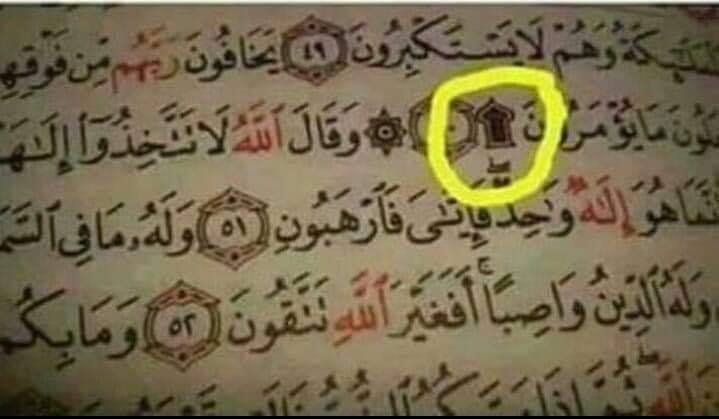 لَٰٓئِكَةُ وَهُمْ لَا يَسْتَكْبِرُونَ ٤٩ يَخَافُونَ رَبَّهُم مِّن فَوْقِهِ
لُونَ مَا يُؤْمَرُونَ ۩ ٥٠ ۞ وَقَالَ ٱللَّهُ لَا تَتَّخِذُوٓا۟ إِلَٰهَ
إِنَّمَا هُوَ إِلَٰهٌ وَٰحِدٌ ۖ فَإِيَّٰىَ فَٱرْهَبُونِ ٥١ وَلَهُۥ مَا فِى ٱلسَّمَ
وَلَهُ ٱلدِّينُ وَاصِبًا ۚ أَفَغَيْرَ ٱللَّهِ تَتَّقُونَ ٥٢ وَمَا بِكُم